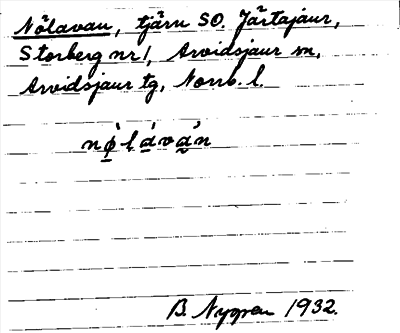 Nôlavan, tjärn SO. Jårtajaur,
Storberg nr 1, Arvidsjaur sn,
Arvidsjaur tg, Norrb. l.
B. Nygren 1932.